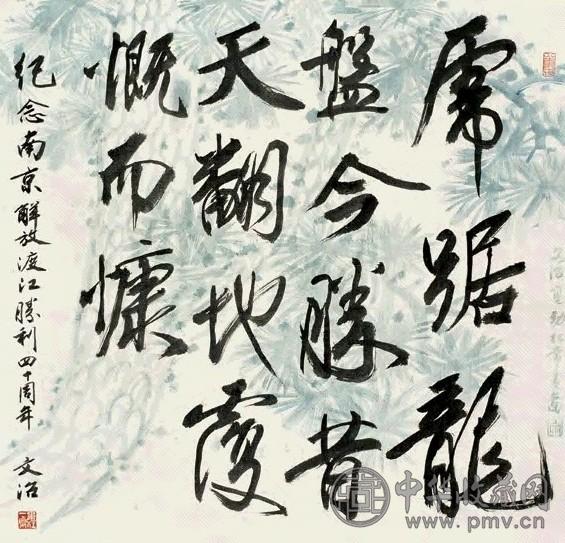 虎踞龍
盤今勝昔
天翻地覆
慨而慷
紀念南京解放渡江勝利四十周年 文治
中华收藏网
www.pmv.cn